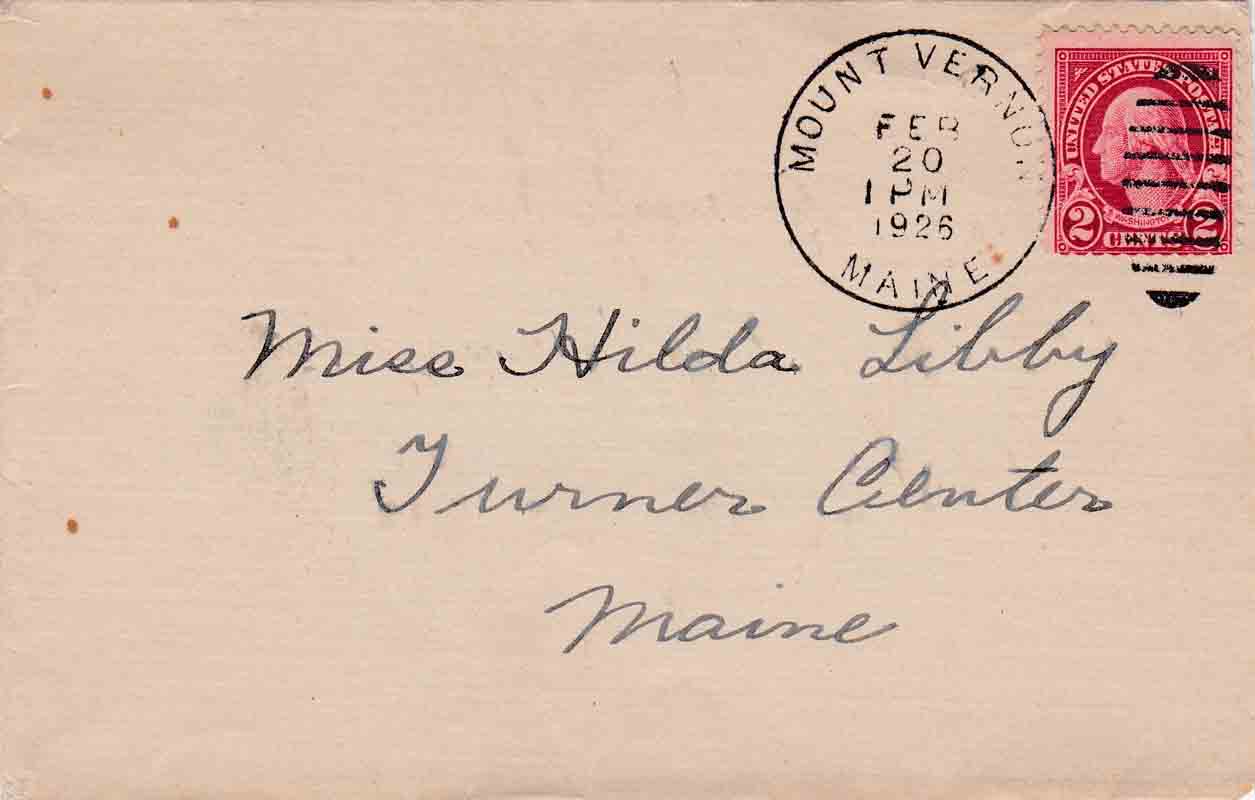 MOUNT VERNON
FEB
20
1 PM
1926
MAINE
UNITED STATES POSTAGE
WASHINGTON
2 CENTS 2
Miss Hilda Libby
Turner Center
Maine